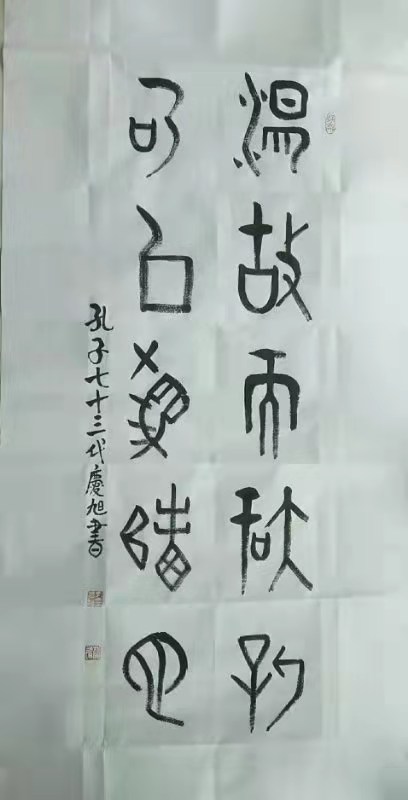 溫故而知新
可以為師
孔子七十三代慶旭書